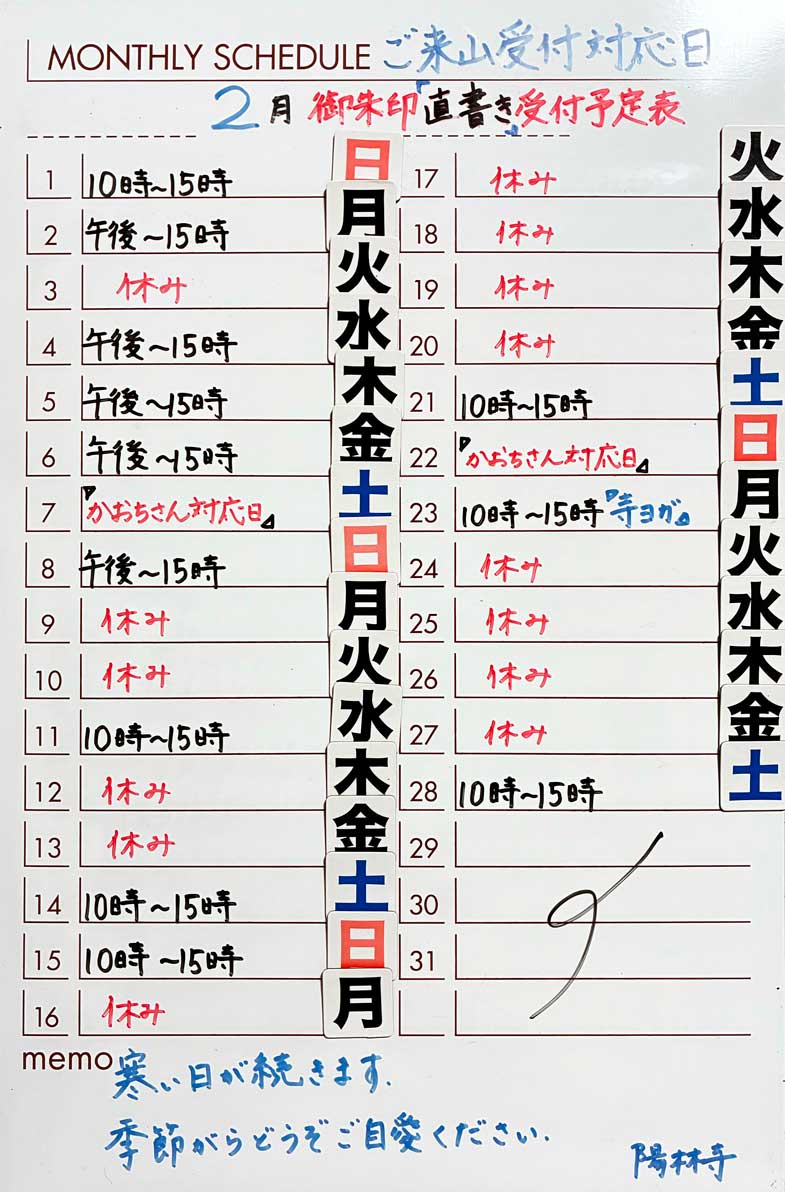 MONTHLY SCHEDULE ご来山受付対応日
2月 御朱印『直書き』受付予定表
1 10時～15時 日
2 午後～15時 月
3 休み 火
4 午後～15時 水
5 午後～15時 木
6 午後～15時 金
7 『かおちさん対応日』 土
8 午後～15時 日
9 休み 月
10 休み 火
11 10時～15時 水
12 休み 木
13 休み 金
14 10時～15時 土
15 10時～15時 日
16 休み 月
17 休み 火
18 休み 水
19 休み 木
20 休み 金
21 10時～15時 土
22 『かおちさん対応日』 日
23 10時～15時『寺ヨガ』 月
24 休み 火
25 休み 水
26 休み 木
27 休み 金
28 10時～15時 土
29
30
31
memo 寒い日が続きます.
季節がらどうぞご自愛ください.
陽林寺